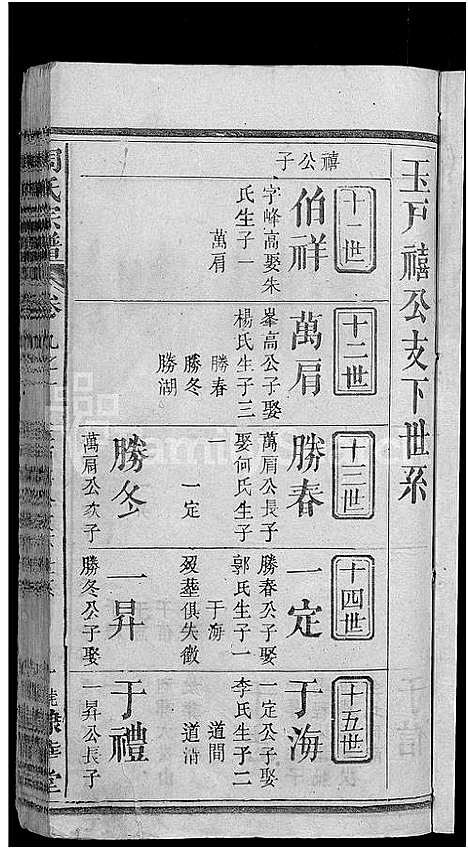 玉戸禧公支下世系
禧公子
十一世
伯祥
字峰高娶朱
氏生子一
萬肩
十二世
萬肩
峯高公子娶
楊氏生子三
勝春
勝冬
勝湖
十三世
勝春
萬肩公長子
娶何氏生子
一
一定
勝冬
萬肩公次子
十四世
一定
勝春公子娶
郭氏生子一
于海
歿塟俱失徵
一昇
勝冬公子娶
十五世
于海
一定公子娶
李氏生子二
道間
道清
于禮
一昇公長子
周氏宗譜
卷九之一